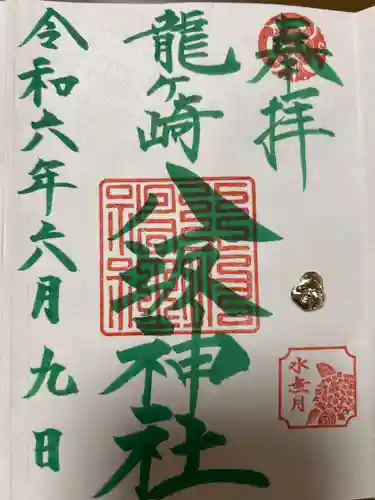 奉拝
龍ヶ崎
八坂神社
令和六年六月九日
水無月